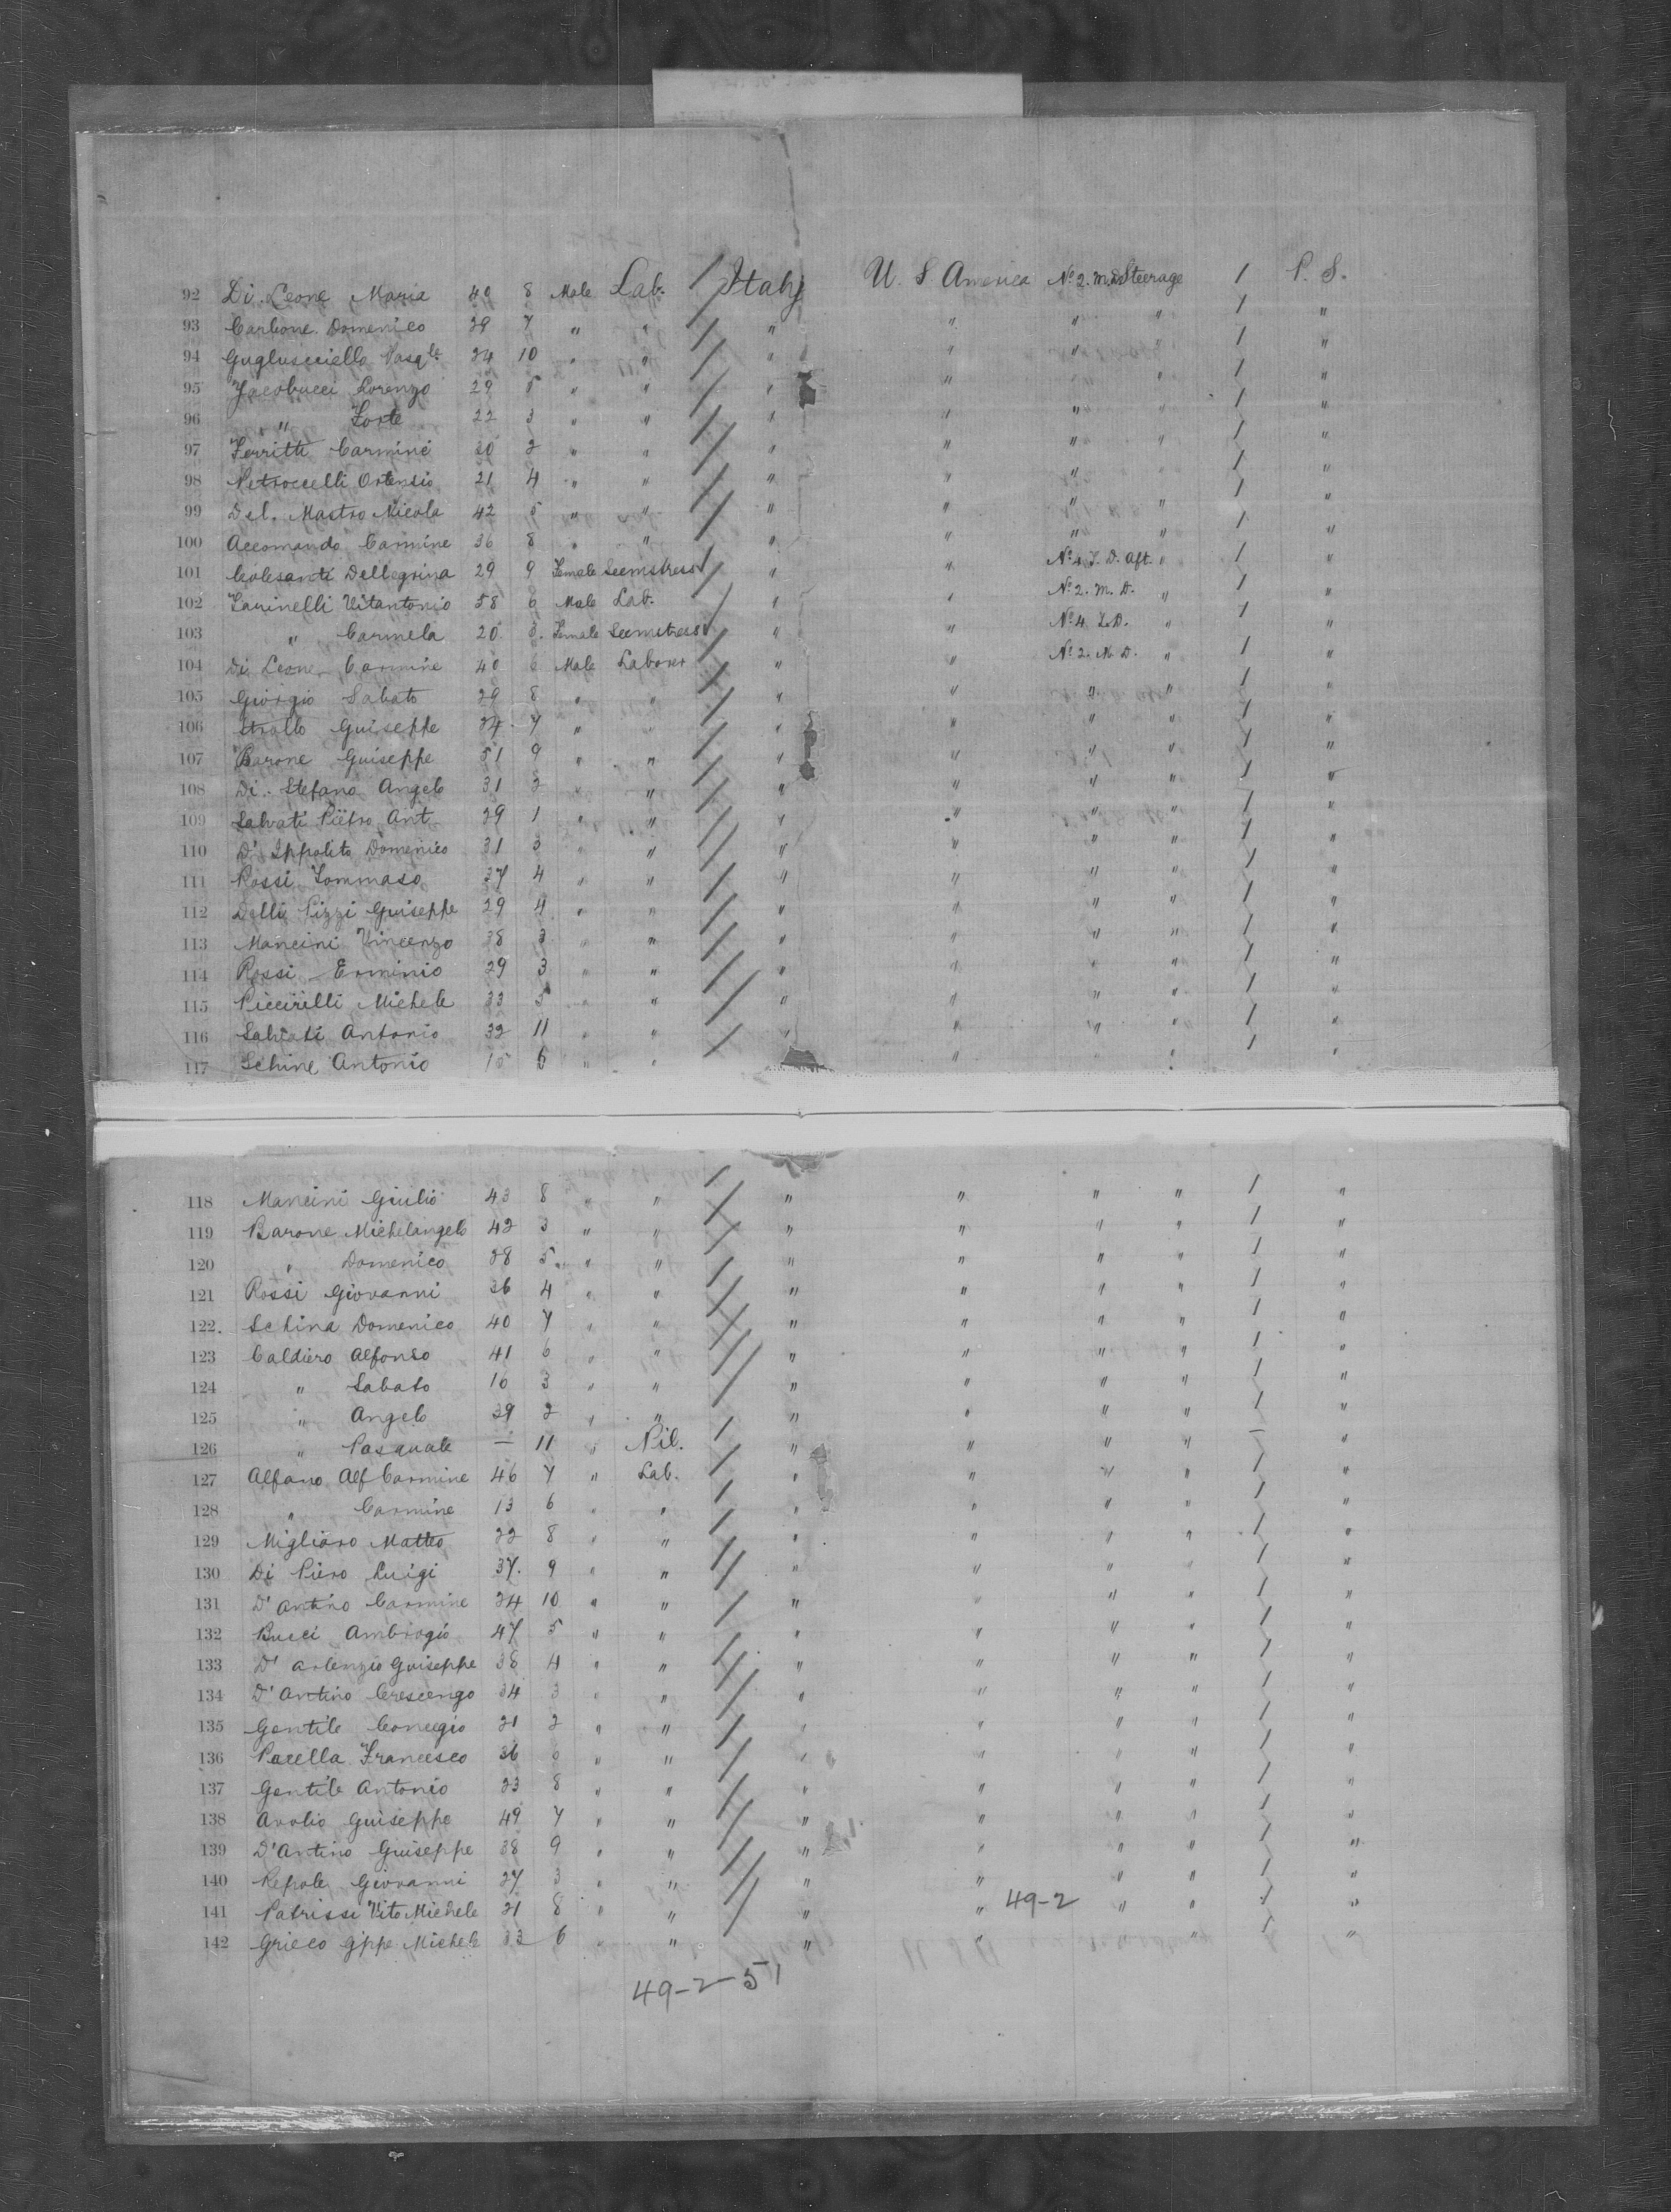 92 Di. Leone Maria 40 8 Male Lab. / Italy U. S America No 2. M. D. Steerage 1 P. S.
93 Carbone Domenico 29 7 " " / " " " " 1 "
94 Guglusciello Pasqle 24 10 " " / " " " " 1 "
95 Jacobucci Lorenzo 29 5 " " / " " " " 1 "
96 " Forte 22 3 " " / " " " " 1 "
97 Ferritti Carmine 30 2 " " / " " " " 1 "
98 Petroccelli Ortensio 21 4 " " / " " " " 1 "
99 Del. Mastro Nicola 42 5 " " / " " " " 1 "
100 Accomando Carmine 36 8 " " / " " " " 1 "
101 Colesanti Pellegrina 29 9 Female Seemstress / " " No 4 L. D. Aft. " 1 "
102 Iarinelli Vitantonio 58 6 Male Lab. / " " No 2. M. D. " 1 "
103 " Carmela 20 3. Female Seemstress / " " No 4 L. D. " 1 "
104 Di Leone Carmine 40 6 Male Laborer / " " No 2. M. D. " 1 "
105 Giorgio Sabato 29 8 " " / " " " " 1 "
106 Strollo Guiseppe 24 7 " " / " " " " 1 "
107 Barone Guiseppe 51 9 " " / " " " " 1 "
108 Di. Stefano Angelo 31 2 " " / " " " " 1 "
109 Salvati Pietro Ant. 29 1 " " / " " " " 1 "
110 D' Ippolito Domenico 31 3 " " / " " " " 1 "
111 Rossi Tommaso 37 4 " " / " " " " 1 "
112 Delli Pizzi Guiseppe 29 4 " " / " " " " 1 "
113 Mancini Vincenzo 38 3 " " / " " " " 1 "
114 Rossi Erminio 29 3 " " / " " " " 1 "
115 Piccirilli Michele 33 5 " " / " " " " 1 "
116 Salvati Antonio 32 11 " " / " " " " 1 "
117 Schine Antonio 15 6 " " / " " " " 1 "
118 Mancini Giulio 43 8 " " / " " " " 1 "
119 Barone Michelangelo 42 3 " " / " " " " 1 "
120 " Domenico 28 5 " " / " " " " 1 "
121 Rossi Giovanni 36 4 " " / " " " " 1 "
122. Schina Domenico 40 7 " " / " " " " 1 "
123 Caldiero Alfonso 41 6 " " / " " " " 1 "
124 " Sabato 16 3 " " / " " " " 1 "
125 " Angelo 39 2 " " / " " " " 1 "
126 " Pasquale — 11 " Nil. / " " " " — "
127 Alfano Alf Carmine 46 7 " Lab. / " " " " 1 "
128 " Carmine 13 6 " " / " " " " 1 "
129 Migliaro Matteo 22 8 " " / " " " " 1 "
130 Di Piero Luigi 37. 9 " " / " " " " 1 "
131 D' Antino Carmine 24 10 " " / " " " " 1 "
132 Bucci Ambrogio 47 5 " " / " " " " 1 "
133 D' Arlenzio Guiseppe 38 4 " " / " " " " 1 "
134 D' Antino Crescengo 34 3 " " / " " " " 1 "
135 Gentile Concegio 21 2 " " / " " " " 1 "
136 Pacella Francesco 36 6 " " / " " " " 1 "
137 Gentile Antonio 23 8 " " / " " " " 1 "
138 Avolio Guiseppe 49 7 " " / " " " " 1 "
139 D'Antino Guiseppe 38 9 " " / " " " " 1 "
140 Repole Giovanni 27 3 " " / " " " " 1 "
141 Patrissi Vito Michele 21 8 " " / " " 49-2 " " 1 "
142 Grieco Gppe Michele 33 6 " " " " " 1 "
49-2-51